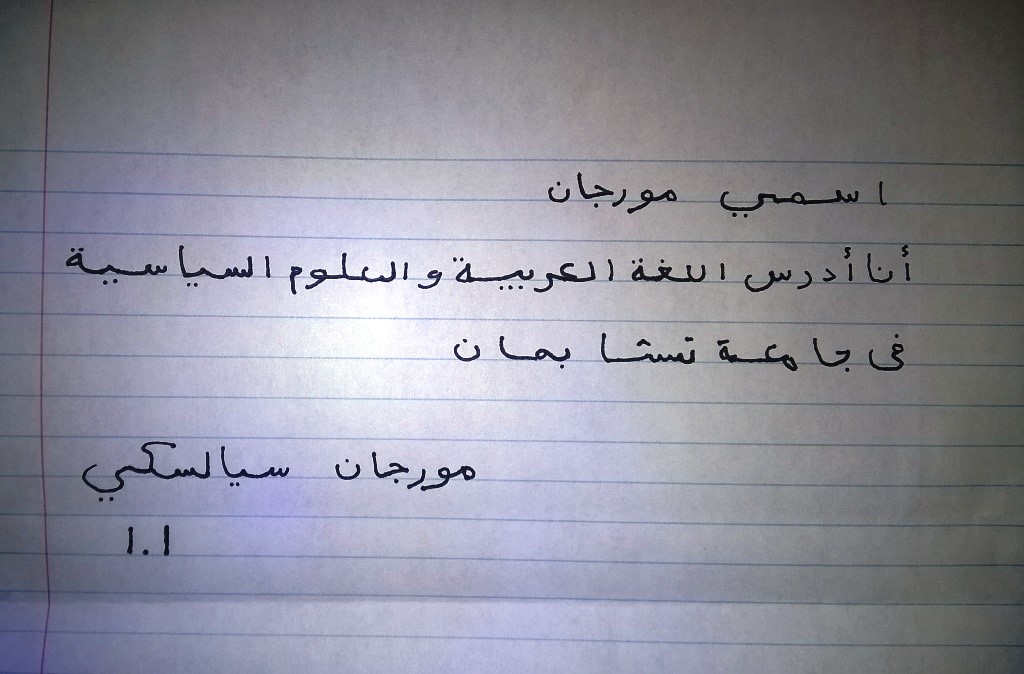 اسمي مورجان
أنا أدرس اللغة العربية والعلوم السياسية
فى جامعة تسشا بمان
مورجان سيالسكي
١٠١